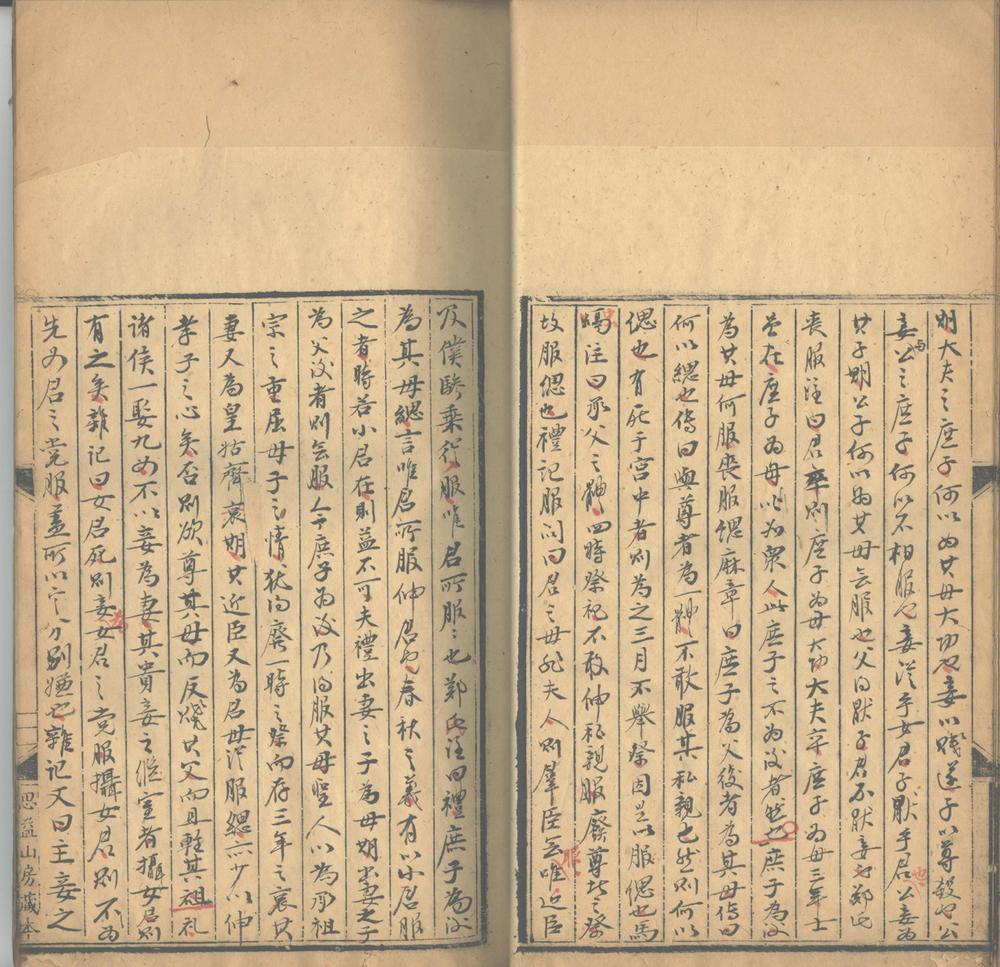 期大夫之庶子何以为其母大功也妾以賤遂子以尊殺也公
妾与公之庶子何以不相服也妾従乎女君子猒乎君公妾为
其子期公子何以为其母无服也父的猒子君不猒妾也郑氏
丧服注曰君卒則庶子为母大功大夫卒庶子为母三年士
虽在庶子为母必如衆人此庶子之不为後者然也庶子为後
为其母何服丧服缌麻章曰庶子為父後者為其母传曰
何以缌也传曰與尊者為一軆不敢服其私親也然則何以
偲也有死于宫中者則為之三月不舉祭因是以服偲也馬
融注曰承父之軆四時祭祀不敢伸私親服廢尊者之祭
故服偲也禮記服问曰君之母非夫人則羣臣无服唯近臣
及僕驂乗従服唯君所服服也郑氏注曰禮庶子為後
為其母緦言唯君所服伸君也春秋之義有以小君服
之者時若小君在則益不可夫禮出妻之子為母期出妻之子
為父後者則无服今庶子為後乃得服其母聖人以為承祖
宗之重屈母子之情犹得廢一時之祭而存三年之哀其
妻又為皇姑齊衰期其近臣又為君母従服缌亦少以伸
孝子之心矣否則欲尊其母而反賤其父向且輕其祖礼
诸侯一娶九女不以妾為妻其貴妾之继室者攝女君則
有之矣雜记曰女君死則妾為女君之党服攝女君則不为
先女君之党服蓋所以示分别嫌也雜记又曰主妾之
思益山房藏本